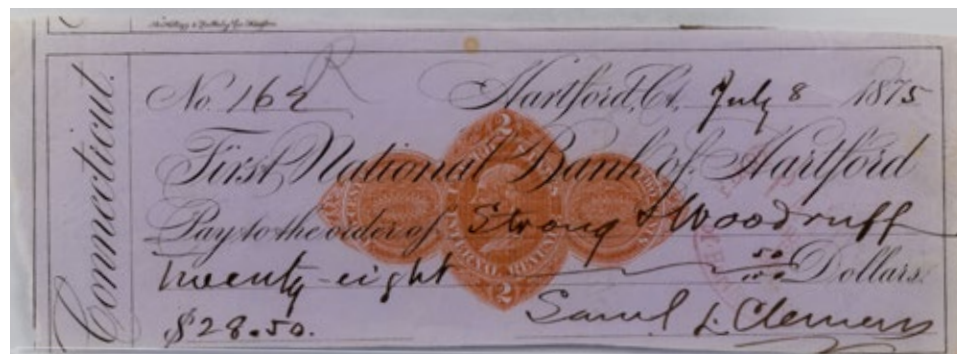 Connecticut.
No. 162 Hartford, Ct. July 8 1875
First National Bank of Hartford
Pay to the order of Strong & Woodruff
Twenty-eight 50/100 Dollars.
$28.50. Saml L. Clemens
2
INTERNAL REVENUE
2